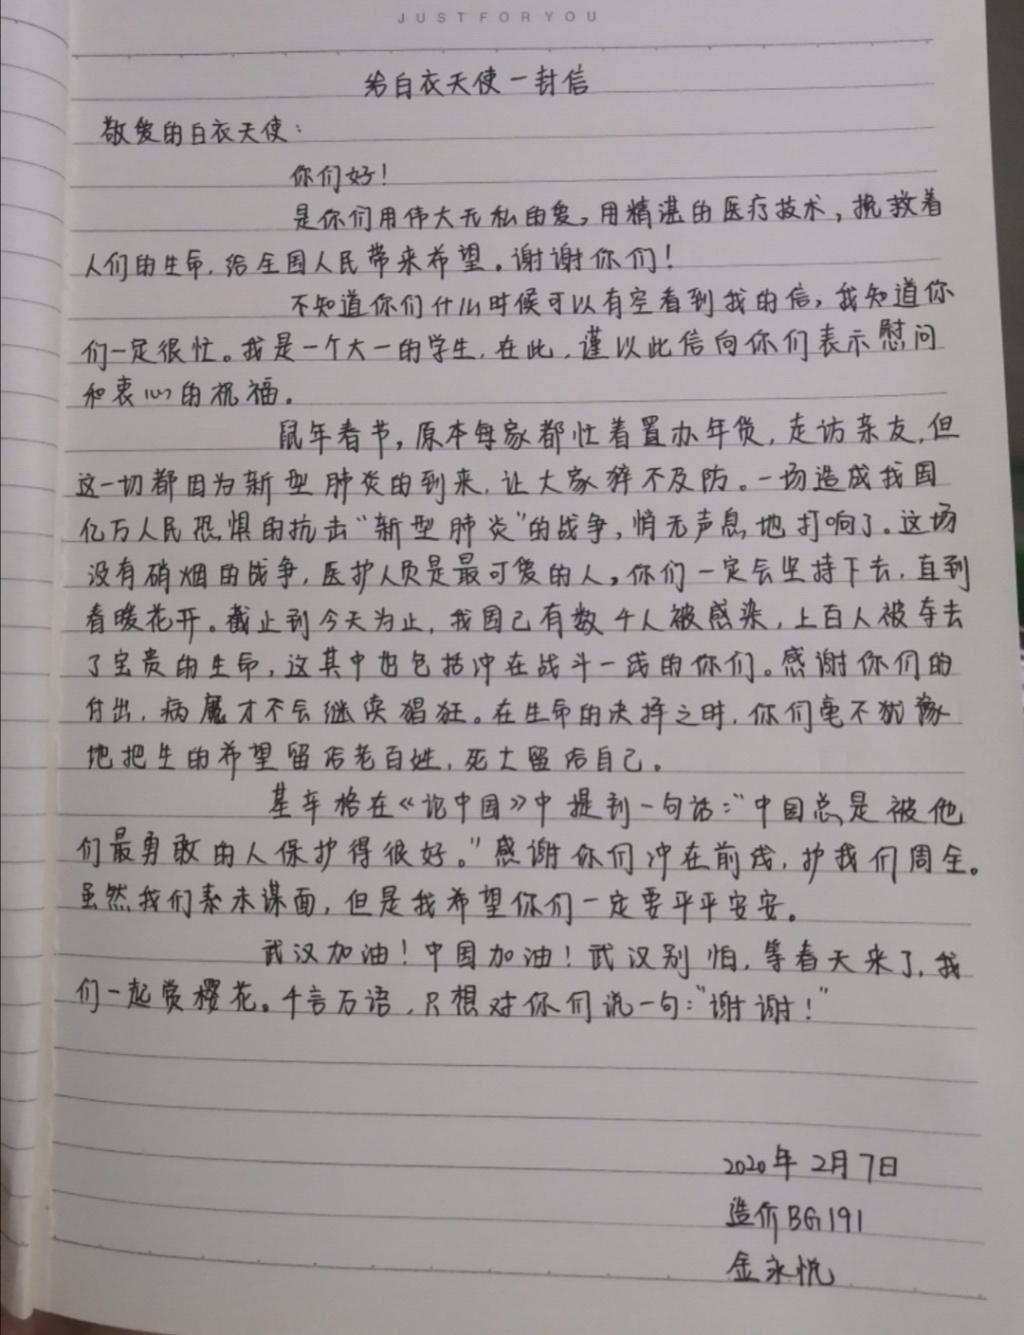 JUST FOR YOU
给白衣天使一封信
敬爱的白衣天使：
你们好！
是你们用伟大无私的爱，用精湛的医疗技术，挽救着
人们的生命，给全国人民带来希望。谢谢你们！
不知道你们什么时候可以有空看到我的信，我知道你
们一定很忙。我是一个大一的学生，在此，谨以此信向你们表示慰问
和衷心的祝福。
鼠年春节，原本每家都忙着置办年货，走访亲友，但
这一切都因为新型肺炎的到来，让大家猝不及防。一场造成我国
亿万人民恐惧的抗击“新型肺炎”的战争，悄无声息地打响了。这场
没有硝烟的战争，医护人员是最可爱的人，你们一定会坚持下去，直到
春暖花开。截止到今天为止，我国已有数千人被感染，上百人被夺去
了宝贵的生命，这其中也包括冲在战斗一线的你们。感谢你们的
付出，病魔才不会继续猖狂。在生命的决择之时，你们毫不犹豫
地把生的希望留给老百姓，死亡留给自己。
基辛格在《论中国》中提到一句话：“中国总是被他
们最勇敢的人保护得很好。”感谢你们冲在前线，护我们周全。
虽然我们素未谋面，但是我希望你们一定要平平安安。
武汉加油！中国加油！武汉别怕，等春天来了，我
们一起赏樱花。千言万语，只想对你们说一句：“谢谢！”
2020年2月7日
造价BG191
金永悦